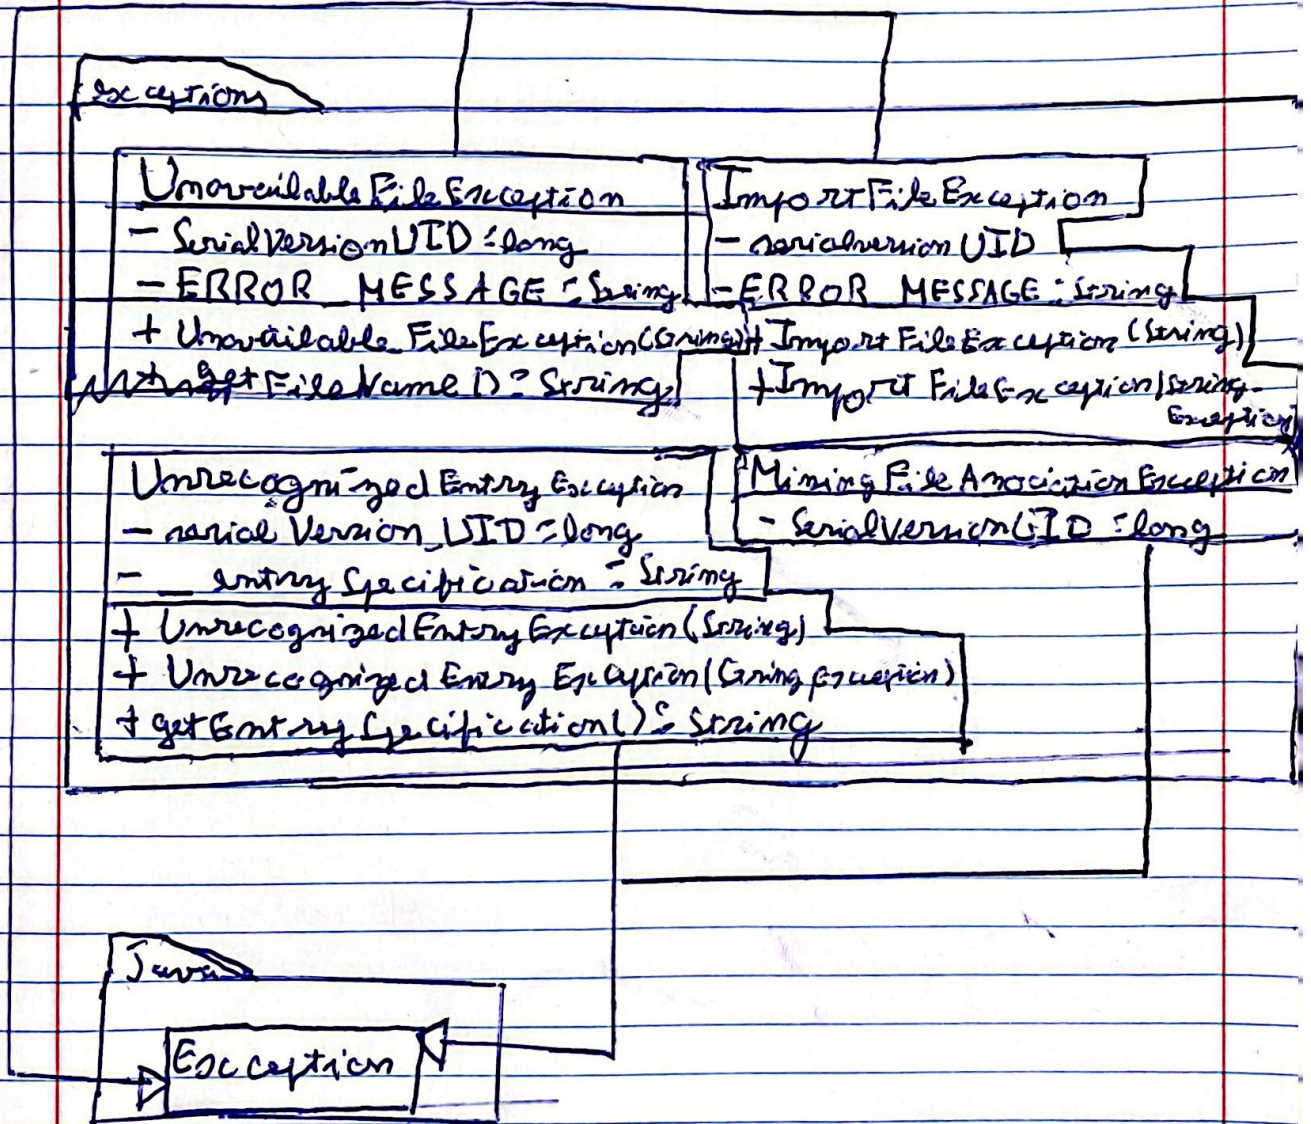 exceptions
UnavailableFileException
- SerialVersionUID : long
- ERROR_MESSAGE : String
+ UnavailableFileException(String)
+ get FileName() : String
ImportFileException
- serialversionUID
- ERROR_MESSAGE : String
+ ImportFileException (String)
+ImportFileException(String-
Exception)
UnrecognizedEntryException
- serialVersion_UID : long
- _entrySpecification : String
+ UnrecognizedEntryException(String)
+ UnrecognizedEntryException(String Exception)
+ getEntrySpecification() : String
MiningFileAssociationException
- SerialVersionUID : long
Java
Exception